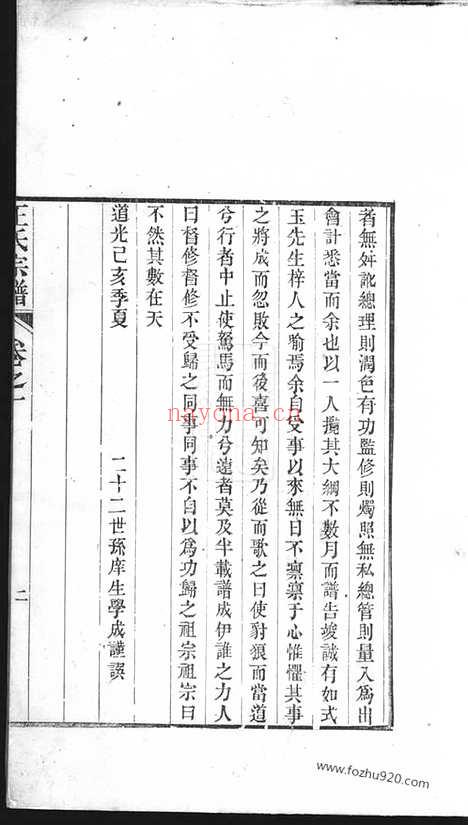 者無舛訛總理則潤色有功監修則燭照無私總管則量入為出
會計悉當而余也以一人攬其大綱不數月而譜告竣誠有如式
玉先生梓人之喻焉余自受事以來無日不禀禀于心惟懼其事
之將成而忽敗今而後喜可知矣乃從而歌之曰使豺狼而當道
兮行者中止使駑馬而無力兮遠者莫及半載譜成伊誰之力人
曰督修督修不受歸之同事同事不自以為功歸之祖宗祖宗曰
不然其數在天
道光己亥季夏
二十二世孫庠生學成謹譔
王氏宗譜
卷之一
二
nayona.cn
www.fozhu920.com